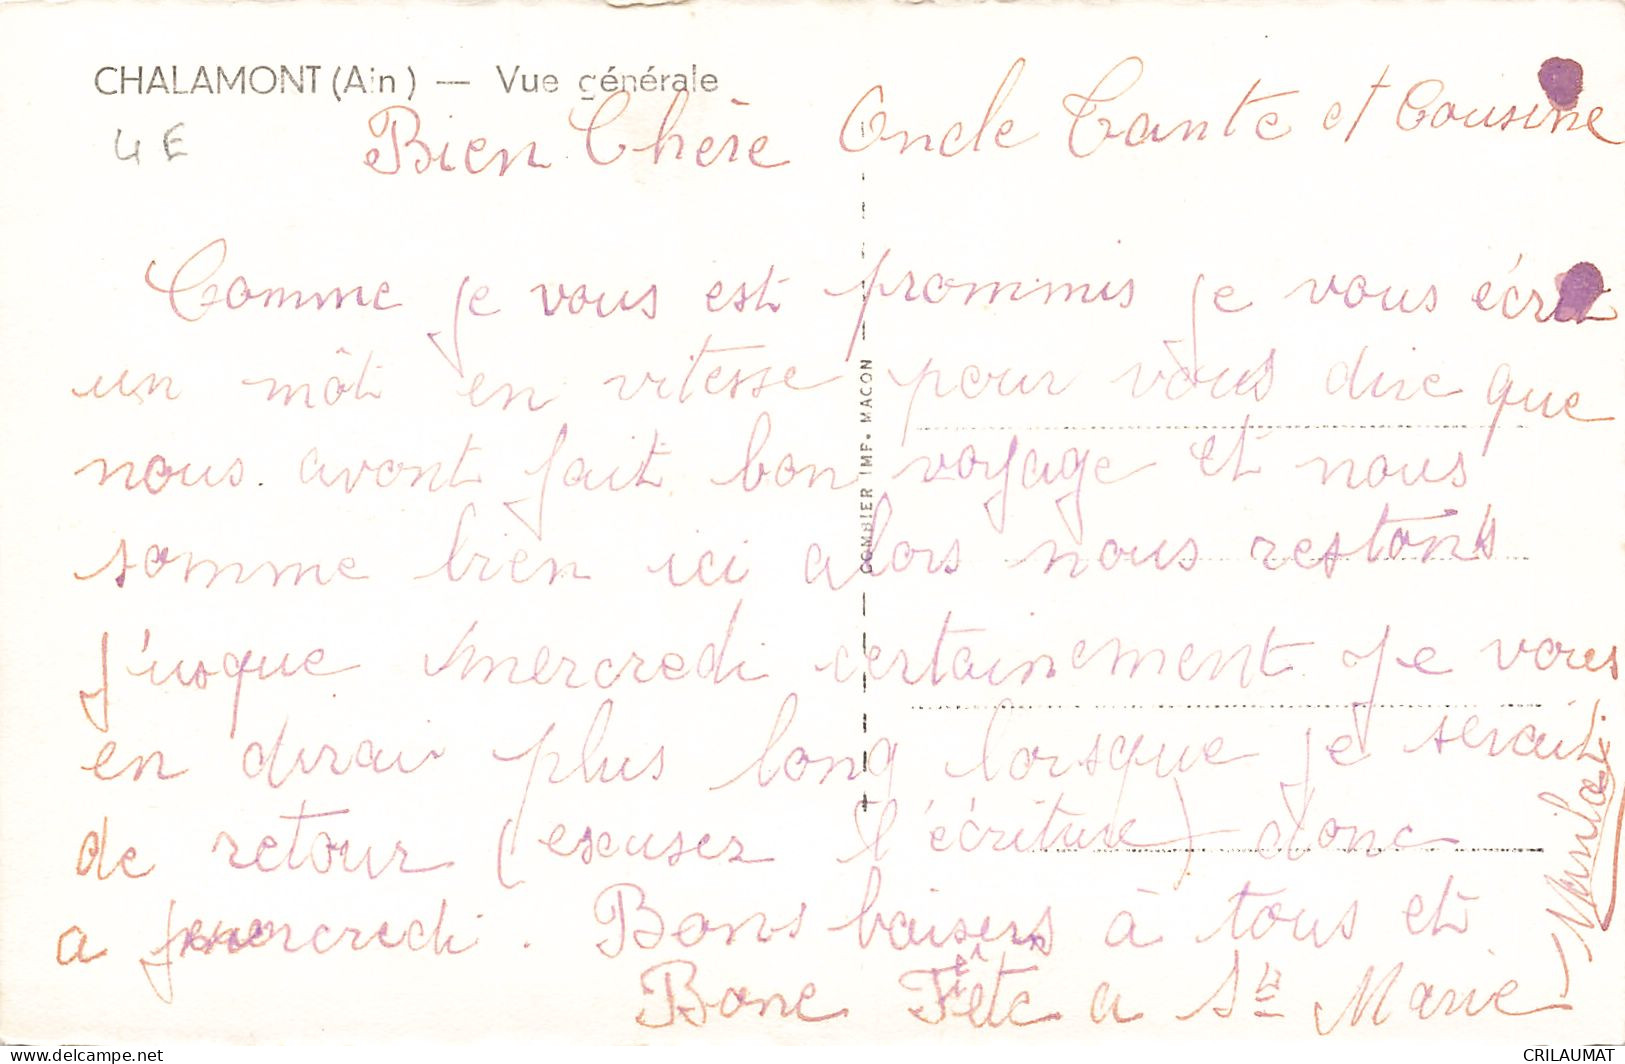 CHALAMONT (Ain) — Vue générale
4 E
Bien Chère Oncle Tante et Cousine
Comme je vous est prommis je vous écrit
un môt en vitesse pour vous dire que
nous avont fait bon voyage et nous
somme bien ici alors nous restons
j'usque mercredi certainement je vous
en dirai plus long lorsque je serait
de retour (escusez l'écriture) donc
a mercredi. Bons baisers à tous et
Bone Fête a Ste Marie
COMBIER IMP. MACON
CRILAUMAT